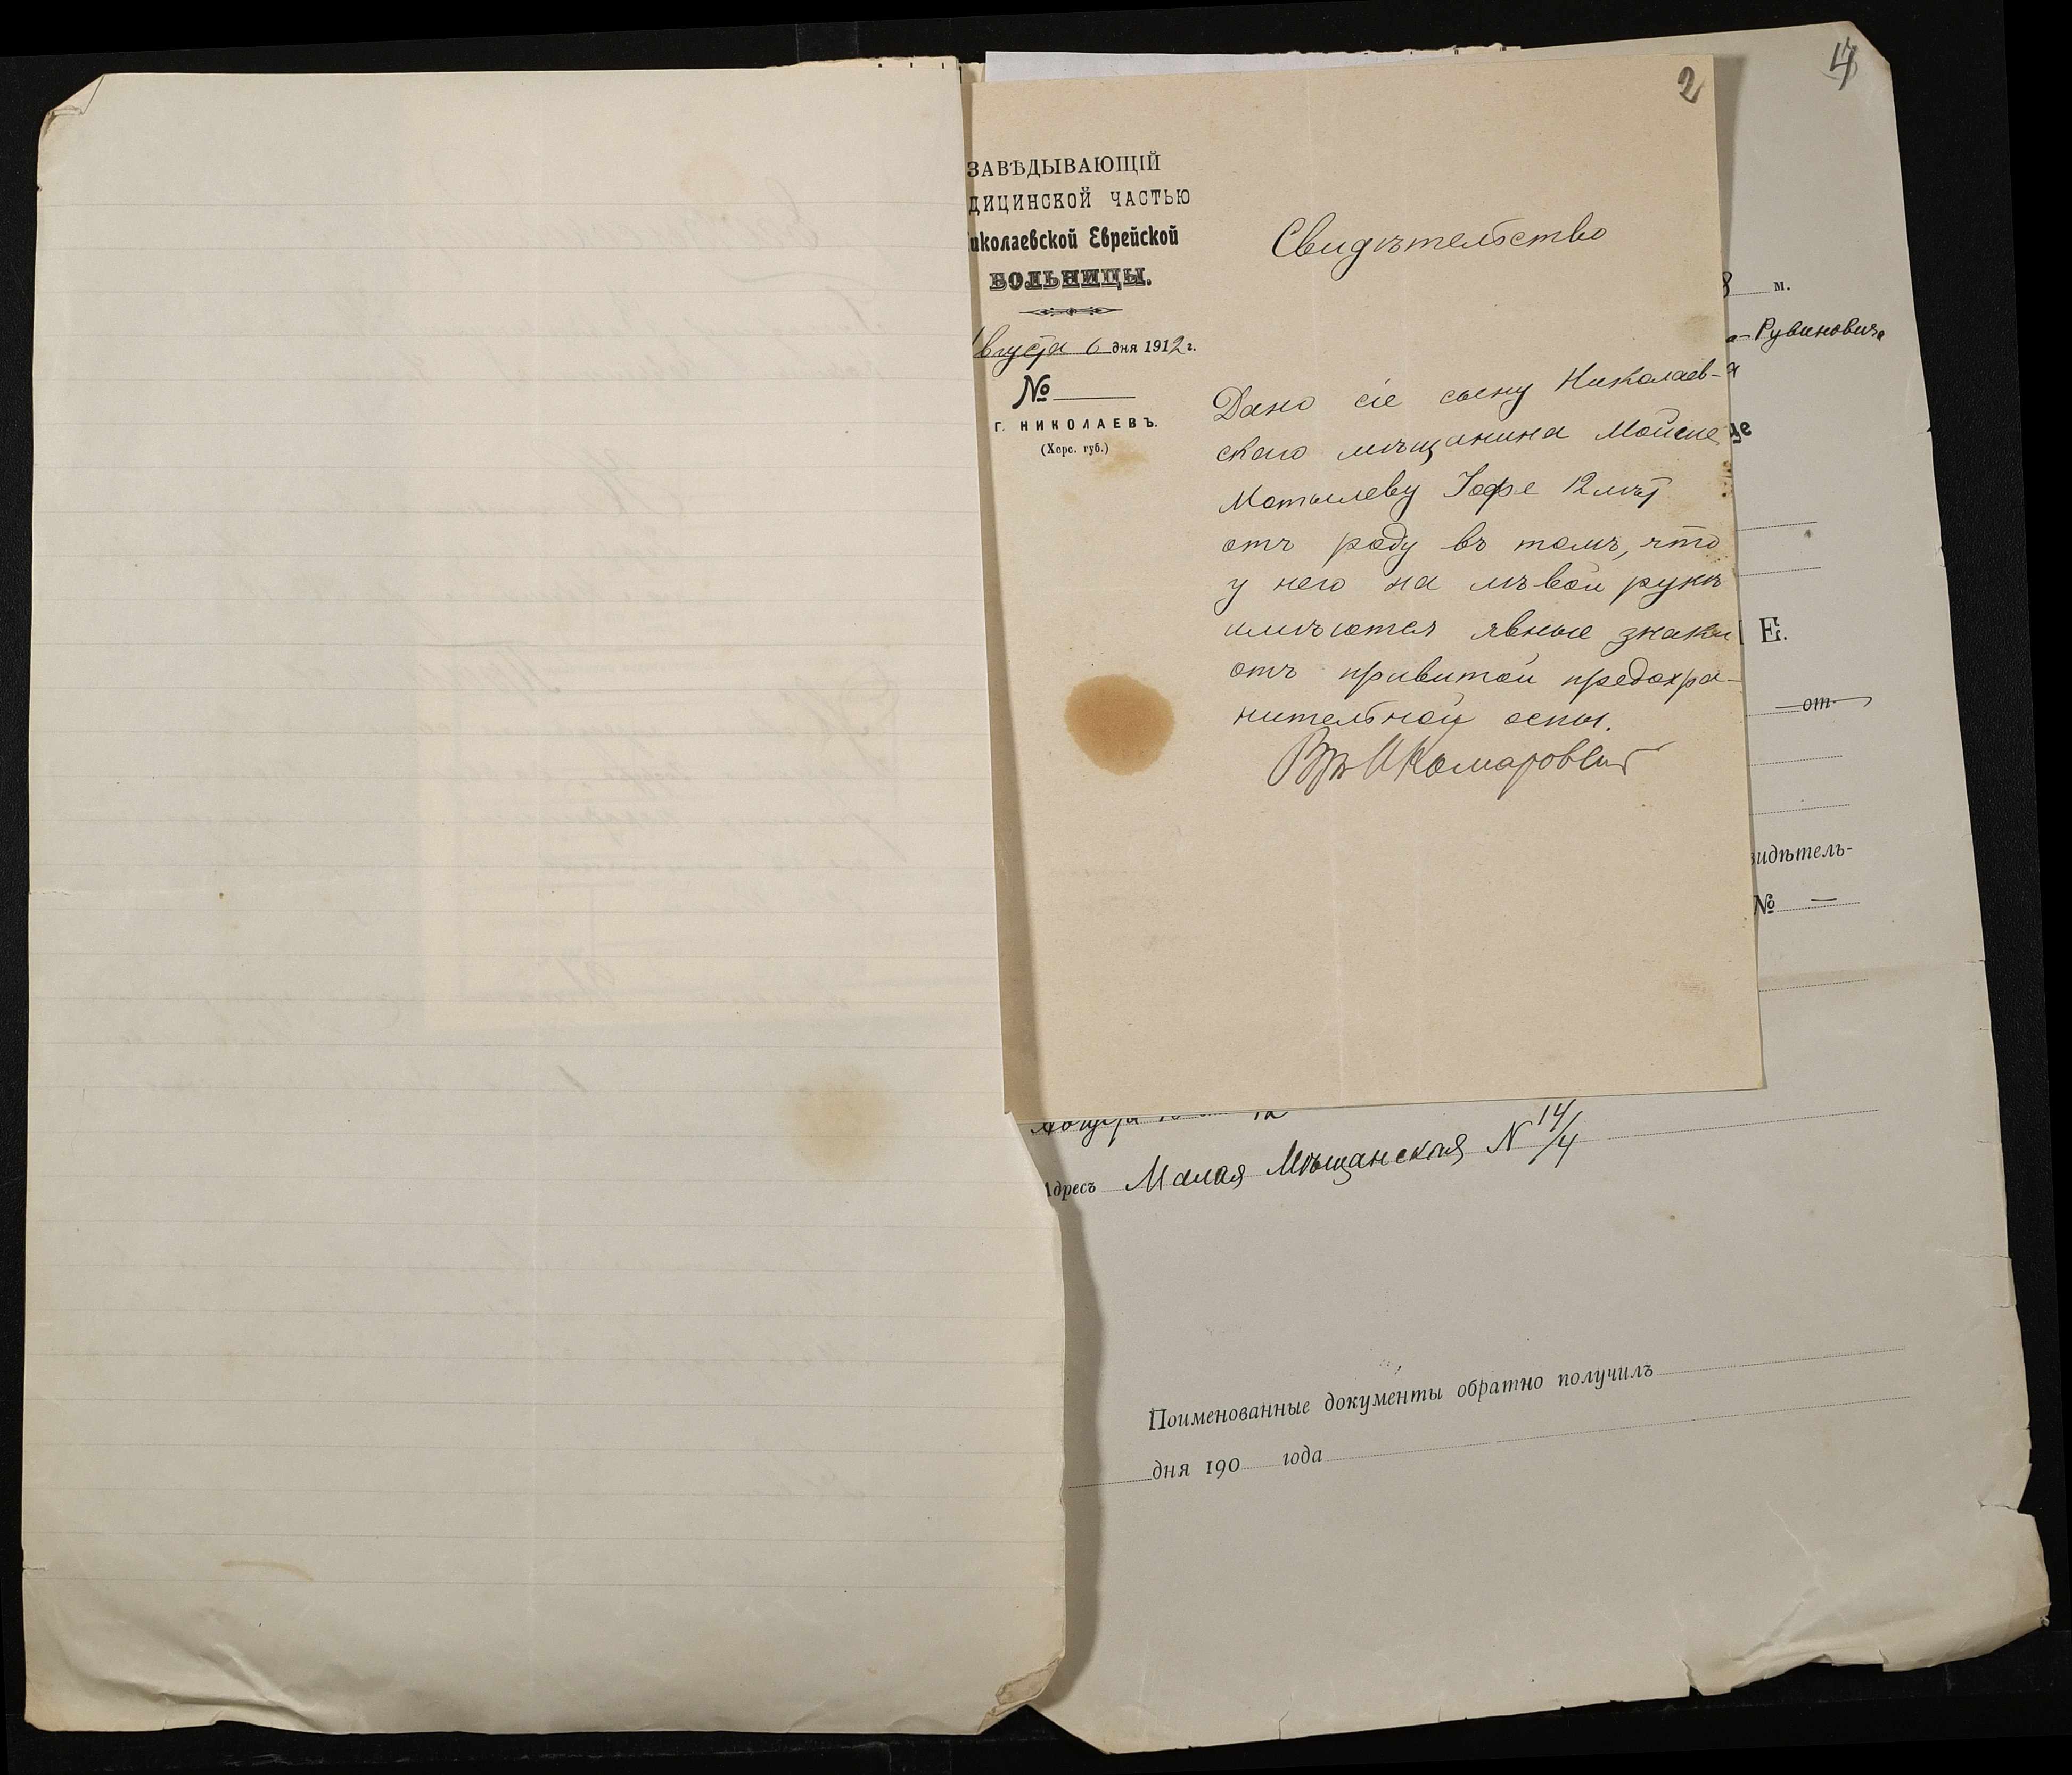 2
4
ЗАВѢДЫВАЮЩІЙ
ДИЦИНСКОЙ ЧАСТЬЮ
иколаевской Еврейской
БОЛЬНИЦЫ.
вгуста 6 дня 1912 г.
№
Г. НИКОЛАЕВЪ.
(Херс. губ.)
Свидѣтельство
Дано сіе сыну Николаев-
скаго мѣщанина Мойсие
Мотылеву Іофе 12 лѣт
отъ роду въ томъ, что
у него на лѣвой рукѣ
имѣются явные знаки
отъ привитой предохра-
нительной оспы.
Вр. И Комаровскі
8 м.
а-Рувиновича
це
Е.
от
видѣтель-
№ —
Адресъ Малая Мѣщанская N 14/4
Поименованные документы обратно получилъ
дня 190 года